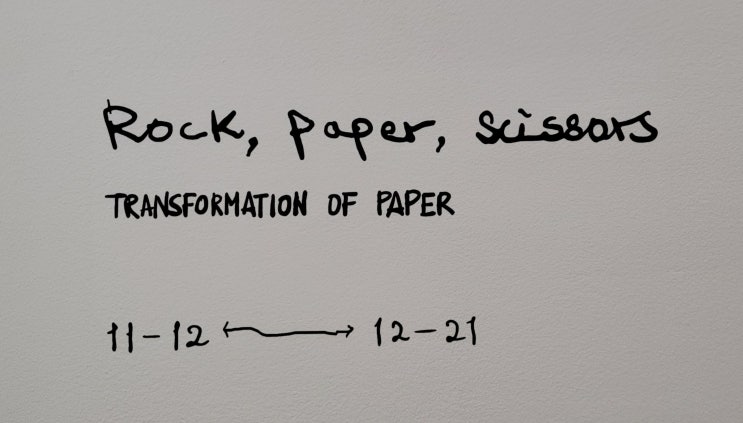 Rock, paper, scissors
TRANSFORMATION OF PAPER
11-12 ⟷ 12-21